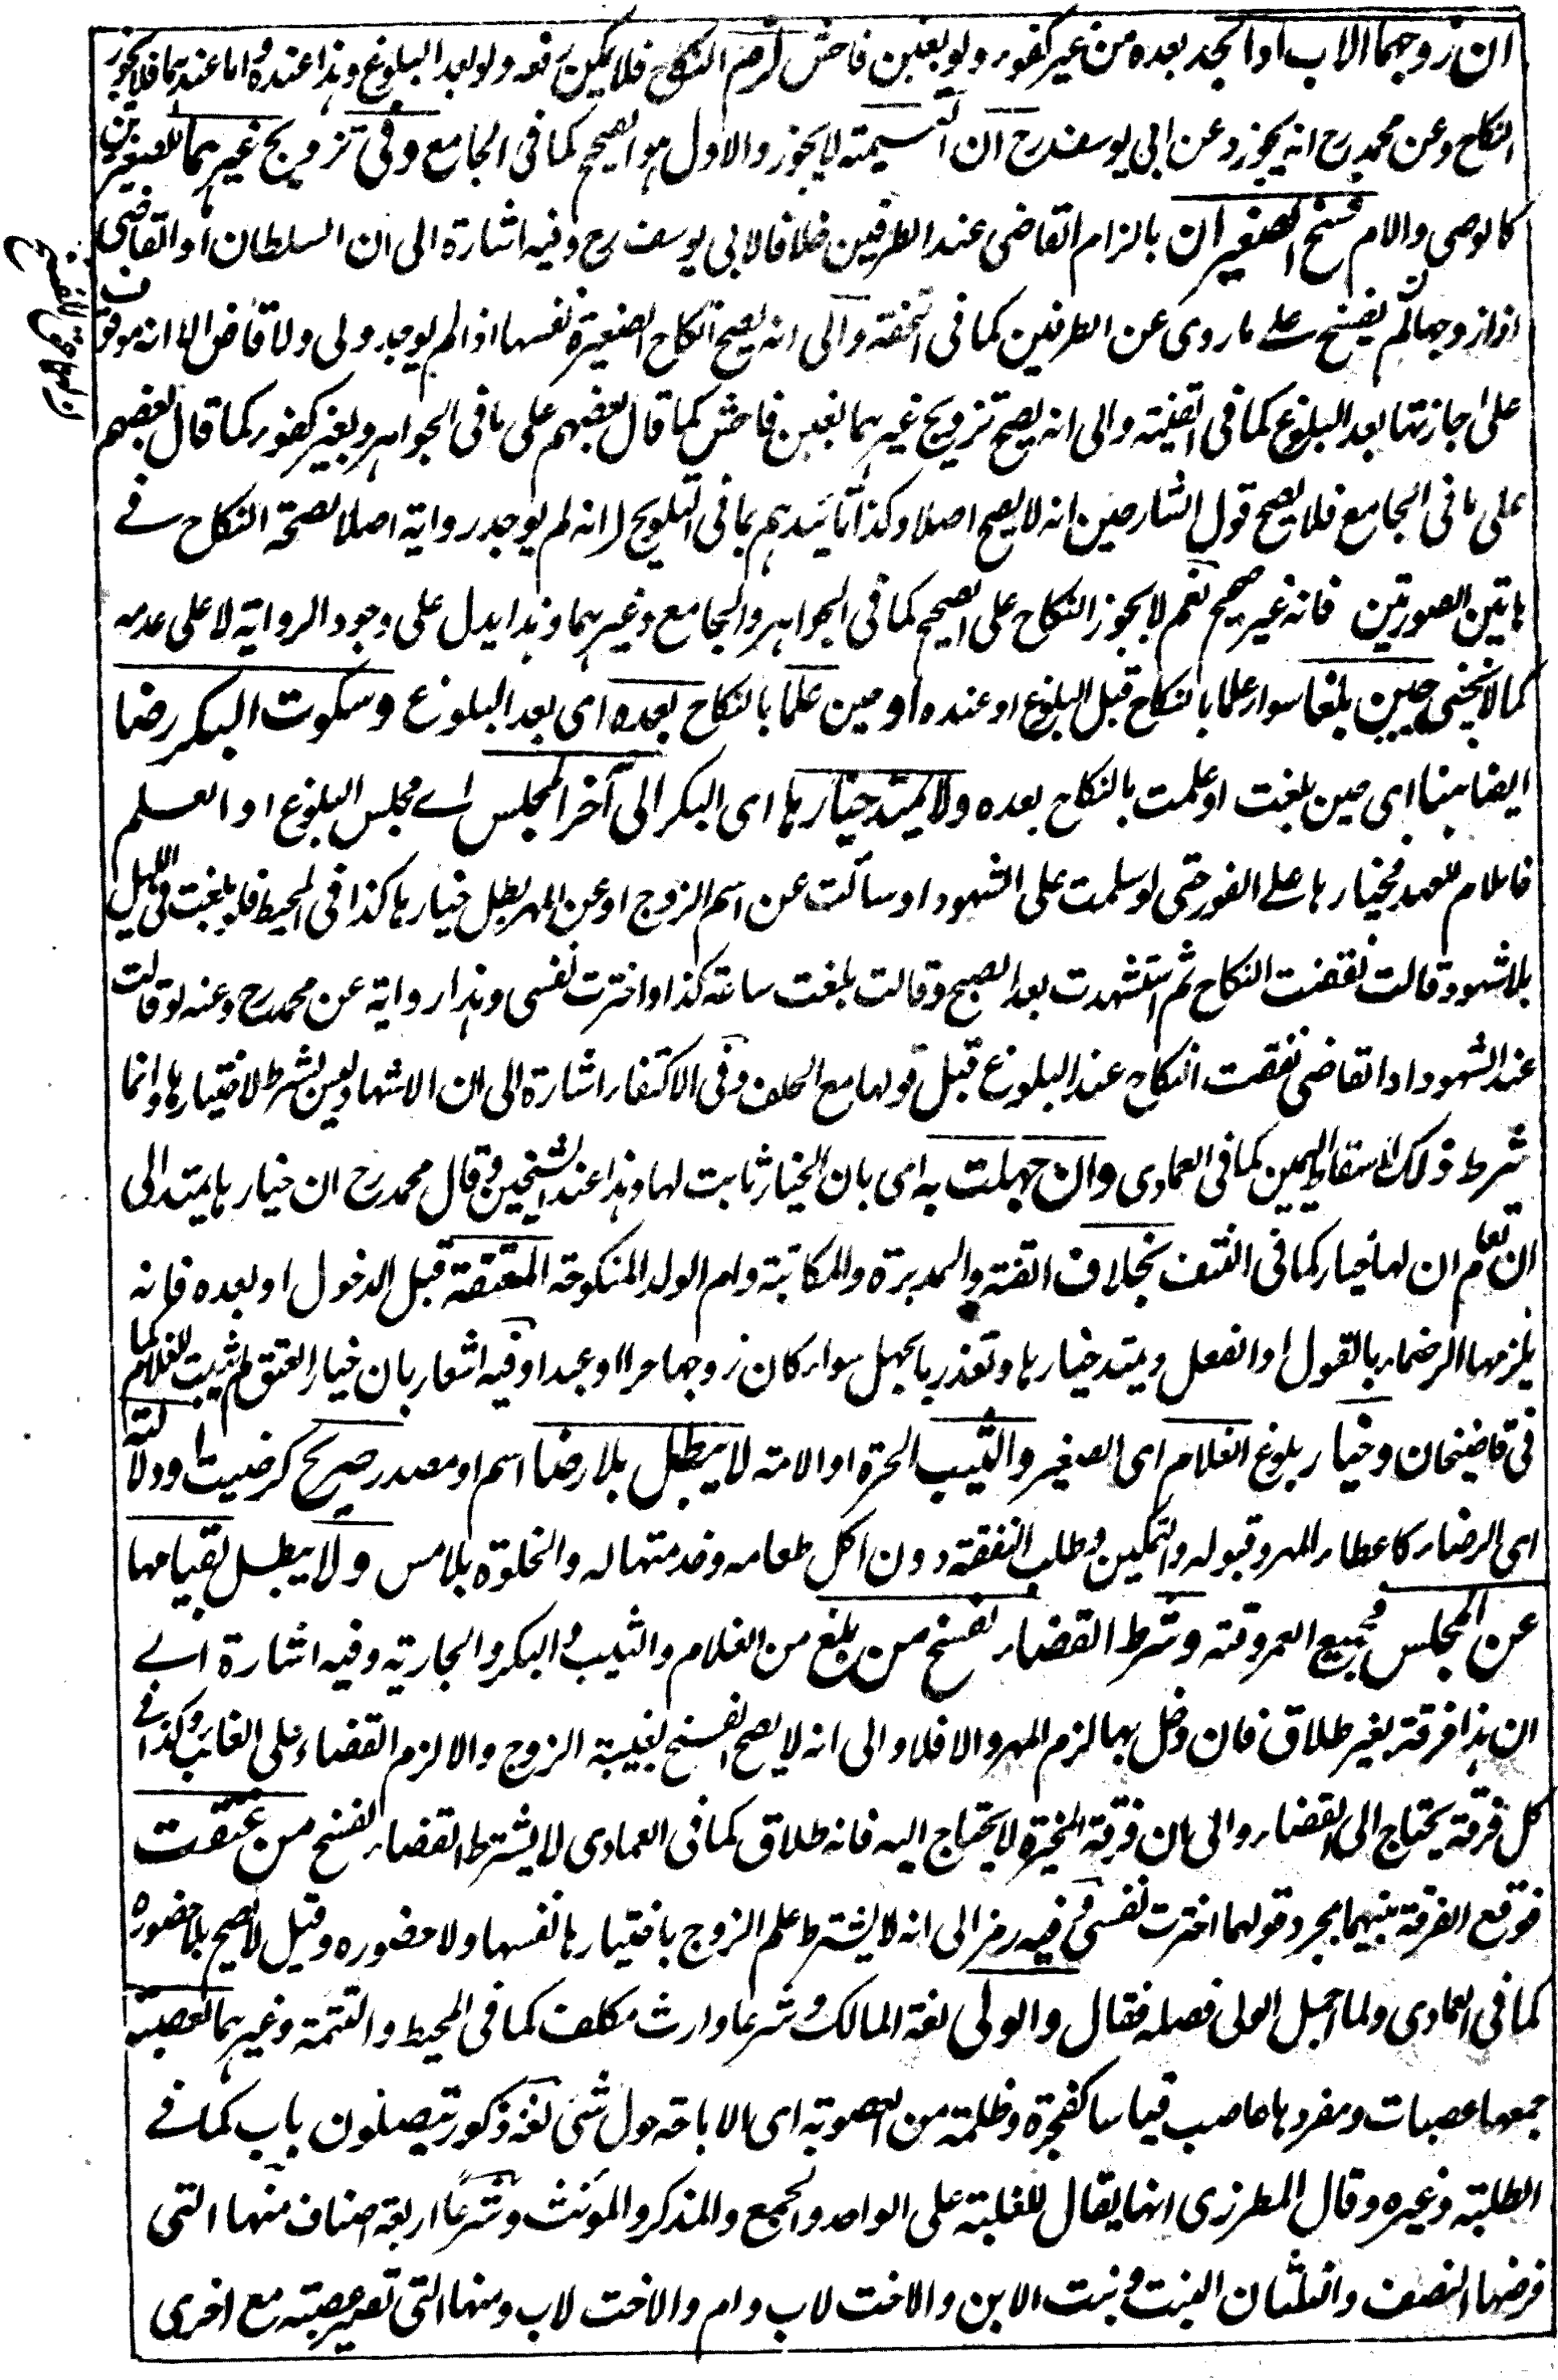 ان زوجهما الاب او الجد بعده من غير كفوء ولو بغبن فاحش لزم النكاح فلا يمكن رفعه ولو بعد البلوغ وهذا عنده واما عندهما فلا يجوز
النكاح وعن محمد رح انه يجوز وعن ابى يوسف رح ان التسمية لا يجوز والاول هو الصحيح كما فى الجامع وفى تزويج غيرهما للصغيرين
كالوصى والام فسخ الصغيران بالزام القاضى عند الطرفين خلافا لابى يوسف رح وفيه اشارة الى ان السلطان او القاضى
اذا زوجها لم يفسخ على ما روى عن الطرفين كما فى التحفة والى انه يصح انكاح الصغيرة نفسها اذا لم يوجد ولى ولا قاض الا انه موقوف
على اجازتها بعد البلوغ كما فى القنية والى انه يصح تزويج غيرهما بغبن فاحش كما قال بعضهم على ما فى الجواهر وبغير كفوء كما قال بعضهم
على ما فى الجامع فلا يصح قول الشارحين انه لا يصح اصلا وكذا تائيدهم بما فى التلويح انه لم يوجد رواية اصلا لصحة النكاح فے
هاتين الصورتين فانه غير صحيح نعم لا يجوز النكاح على الصحيح كما فى الجواهر والجامع وغيرهما وهذا يدل على وجود الرواية لا على عدمه
كما لا يخفى حين بلغا سواء علما بالنكاح قبل البلوغ او عنده او حين علما بالنكاح بعده اى بعد البلوغ وسكوت البكر رضا
ايضا هنا اى حين بلغت او علمت بالنكاح بعده ولا يمتد خيارها اى البكر الى آخر المجلس اے مجلس البلوغ او العلم
فاللام للعهد فخيارها على الفور حتى لو سلمت على الشهود او سألت عن اسم الزوج او عن المهر بطل خيارها كذا فى المحيط فلو بلغت فى الليل
بلا شهود قالت نقضت النكاح ثم استشهدت بعد الصبح وقالت بلغت ساعة كذا واخترت نفسى وهذا رواية عن محمد رح وعنه لو قالت
عند الشهود او القاضى نقضت النكاح عند البلوغ قبل قولها مع الحلف وفى الاكتفاء اشارة الى ان الاشهاد ليس بشرط لاختيارها وانما
شرط ذلك لاسقاط اليمين كما فى العمادى وان جهلت به اى بان الخيار ثابت لها وهذا عند الشيخين وقال محمد رح ان خيارها يمتد الى
ان تعلم ان لها خيار كما فى النتف بخلاف القنة والمدبرة والمكاتبة وام الولد المنكوحة المعتقة قبل الدخول او بعده فانه
يلزمها الرضاء بالقول او الفعل ويمتد خيارها وتعذر بالجهل سواء كان زوجها حرا او عبدا وفيه اشعار بان خيار العتق لم يثبت للغلام كما
فى قاضيخان وخيار بلوغ الغلام اى الصغير والثيب الحرة او الامة لا يبطل بلا رضا اسم او مصدر صريح كرضيت او دلالته
اى الرضاء كاعطاء المهر وقبوله والتمكين وطلب النفقة دون اكل طعامه وخدمتها له والخلوة بلا مس ولا يبطل بقيامها
عن المجلس فجميع العمر وقته وشرط القضاء لفسخ من بلغ من الغلام والثيب والبكر والجارية وفيه اشارة الے
ان هذا فرقة بغير طلاق فان دخل بها لزم المهر والا فلا والى انه لا يصح الفسخ بغيبة الزوج والا لزم القضاء على الغائب وكذا فے
كل فرقة يحتاج الى القضاء والى ان فرقة المخيرة لا يحتاج اليه فانه طلاق كما فى العمادى لا يشترط القضاء لفسخ من عتقت
فوقع الفرقة بينهما بمجرد قولها اخترت نفسى وفيه رمز الى انه لا يشترط علم الزوج باختيارها نفسها ولا حضوره وقيل لا يصح بلا حضوره
كما فى العمادى ولما اجمل الولى فصله فقال والولى لغة المالك وشرعا وارث مكلف كما فى المحيط والتتمة وغيرهما العصبة
جمعها عصبات ومفردها عاصب قياسا كفجرة وظلمة من العصوبة اى الاحاطة حول شئ لغة ذكور يتصلون باب كما فے
الطلبة وغيره وقال المطرزى انها يقال للغلبة على الواحد والجمع والمذكر والمؤنث وشرعا اربعة اصناف منها التى
فرضها النصف والثلثان البنت وبنت الابن والاخت لاب وام والاخت لاب ومنها التى تصير عصبة مع اخرى